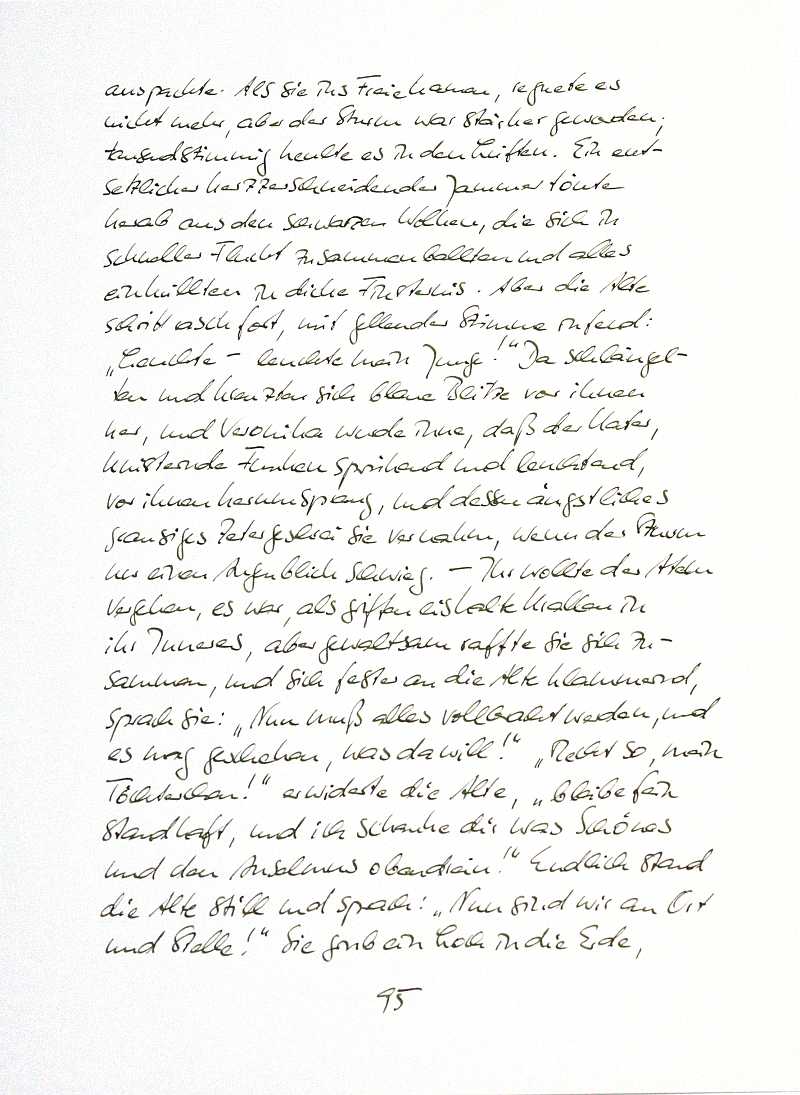 auspackte. Als sie ins Freie kamen, regnete es
nicht mehr, aber der Sturm war stärker geworden;
tausendstimmig heulte es in den Lüften. Ein ent-
setzlicher herzzerschneidender Jammer tönte
herab aus den schwarzen Wolken, die sich in
schneller Flucht zusammenballten und alles
einhüllten in dicke Finsternis. Aber die Alte
schritt rasch fort, mit gellender Stimme rufend:
„Leuchte – leuchte mein Junge!“ Da schlängel-
ten und kreuzten sich blaue Blitze vor ihnen
her, und Veronika wurde inne, daß der Kater,
knisternde Funken sprühend und leuchtend,
vor ihnen herumsprang, und dessen ängstliches
grausiges Zetergeschrei sie vernahm, wenn der Sturm
nur einen Augenblick schwieg. – Ihr wollte der Atem
vergehen, es war, als griffen eiskalte Krallen in
ihr Inneres, aber gewaltsam raffte sie sich zu-
sammen, und sich fester an die Alte klammernd,
sprach sie: „Nun muß alles vollbracht werden, und
es mag geschehen, was da will!“ „Recht so, mein
Töchterchen!“ erwiderte die Alte, „bleibe fein
standhaft, und ich schenke dir was Schönes
und den Anselmus obendrein!“ Endlich stand
die Alte still und sprach: „Nun sind wir an Ort
und Stelle!“ Sie grub ein Loch in die Erde,
95